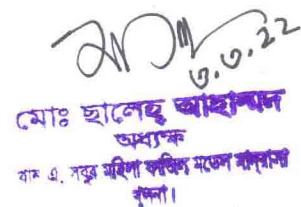 ৩.৩.22
মোঃ ছালেহ আহাম্মদ
অধ্যক্ষ
এ. সবুর মহিলা কামিল মডেল মাদ্রাসা
খুলনা।